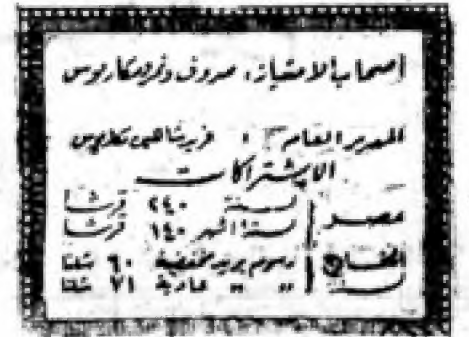 أصحاب الامتياز: صروف ونمر ومكاريوس
المدير العام: فريد شاهين مكاريوس
الاشتراكات
مصر
لسنة ٢٤٠ قرشا
لستة أشهر ١٤٠ قرشا
الخارج
لسنة
رسوم بريد مخفضة ٦٠ شلنا
" " عادية ٧١ شلنا